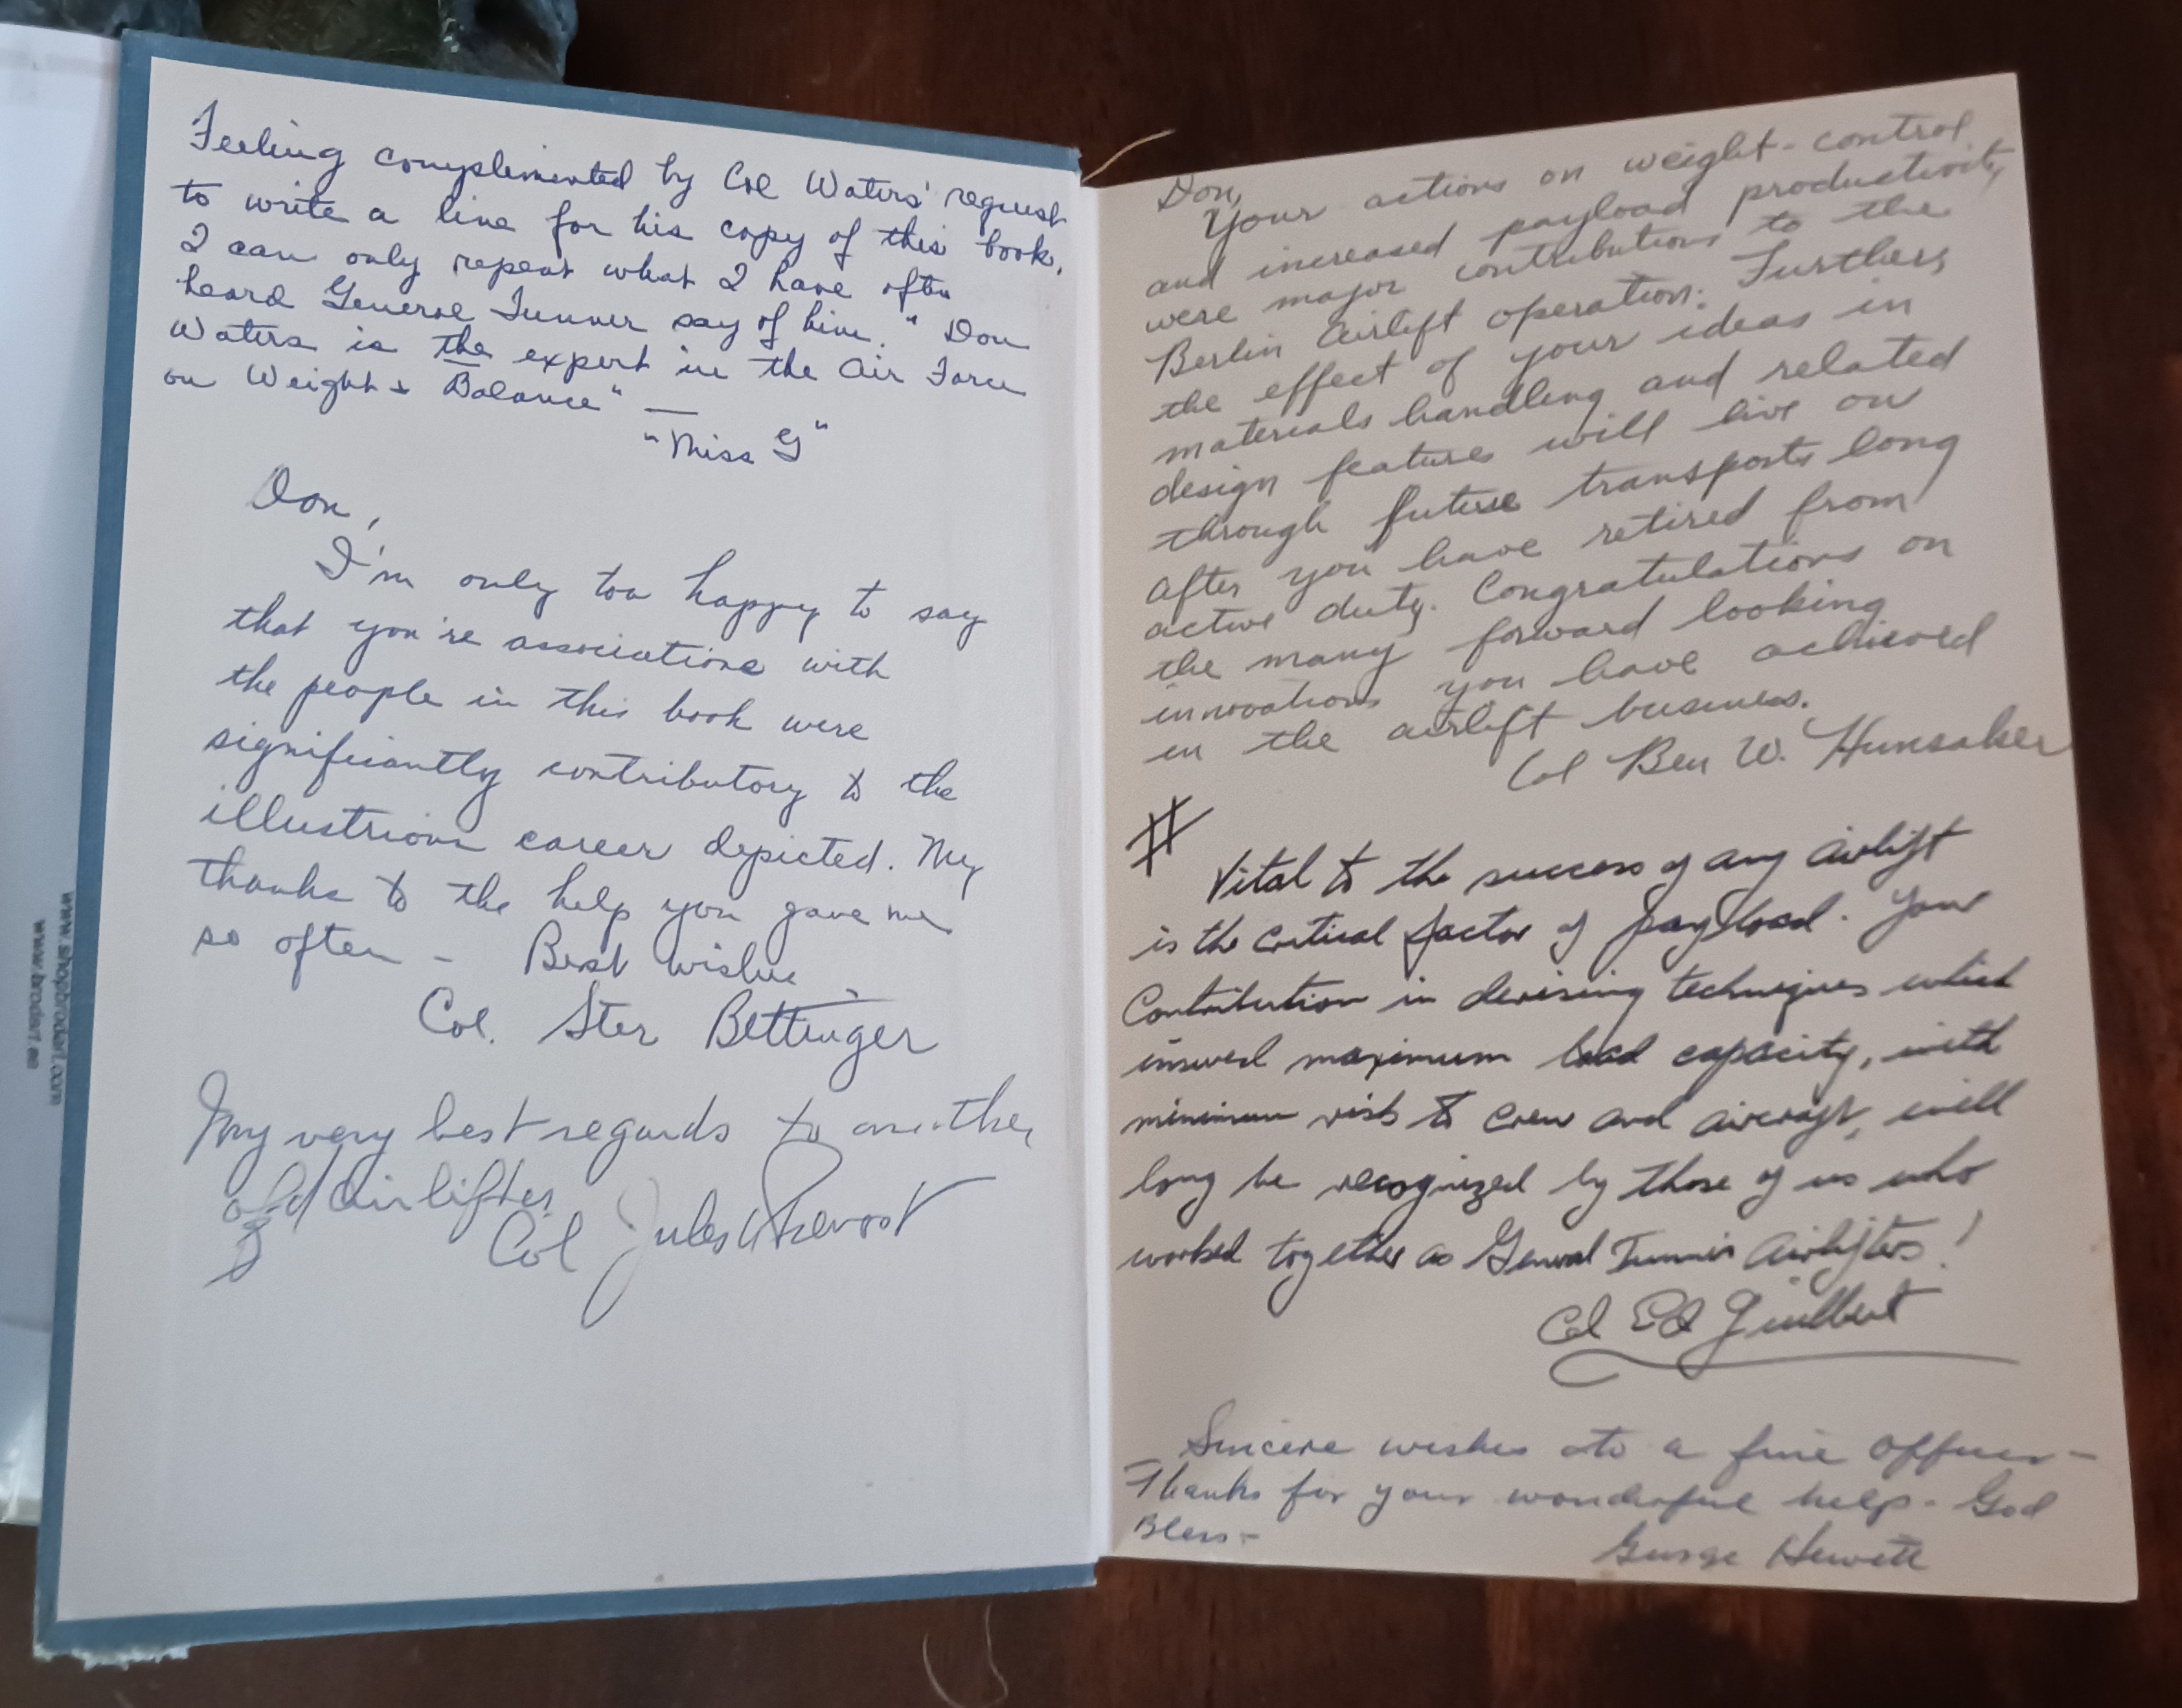 Feeling complimented by Col Waters' request
to write a line for his copy of this book,
I can only repeat what I have often
heard General Tunner say of him. "Don
Waters is the expert in the Air Force
on Weight & Balance" —
"Miss G"
Don,
I'm only too happy to say
that you're associations with
the people in this book were
significantly contributory to the
illustrious career depicted. My
thanks to the help you gave me
so often - Best wishes
Col. Ster Bettinger
My very best regards to another
old airlifter
Col Jules Prevost
www.shopbrodart.com
Don,
Your actions on weight-control
and increased payload productivity
were major contributions to the
Berlin Airlift operation. Further,
the effect of your ideas in
materials handling and related
design features will live on
through future transports long
after you have retired from
active duty. Congratulations on
the many forward looking
innovations you have achieved
in the airlift business.
Col Ben W. Hunsaker
#
Vital to the success of any airlift
is the critical factor of payload. Your
Contribution in devising techniques which
insured maximum load capacity, with
minimum risk to crew and aircraft, will
long be recognized by those of us who
worked together as General Tunner Airlifters!
Col Ed Guilbert
Sincere wishes to a fine officer -
Thanks for your wonderful help - God
Bless -
George Hewett